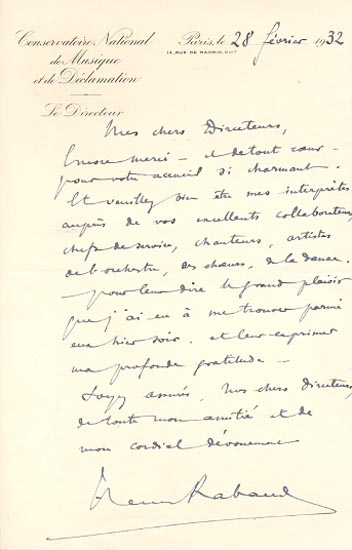 Conservatoire National
de Musique
et de Déclamation
Le Directeur
Paris, le 28 février 1932
14, RUE DE MADRID, VIIIe
Mes chers Directeurs,
Encore merci — et de tout cœur —
pour votre accueil si charmant.
Et veuillez bien être mes interprètes
auprès de vos excellents collaborateurs,
chefs de service, chanteurs, artistes
de l'orchestre, des chœurs, de la danse,
— pour leur dire le grand plaisir
que j'ai eu à me trouver parmi
eux hier soir, et leur exprimer
ma profonde gratitude —
Soyez assurés, mes chers Directeurs,
de toute mon amitié et de
mon cordial dévouement
Henri Rabaud